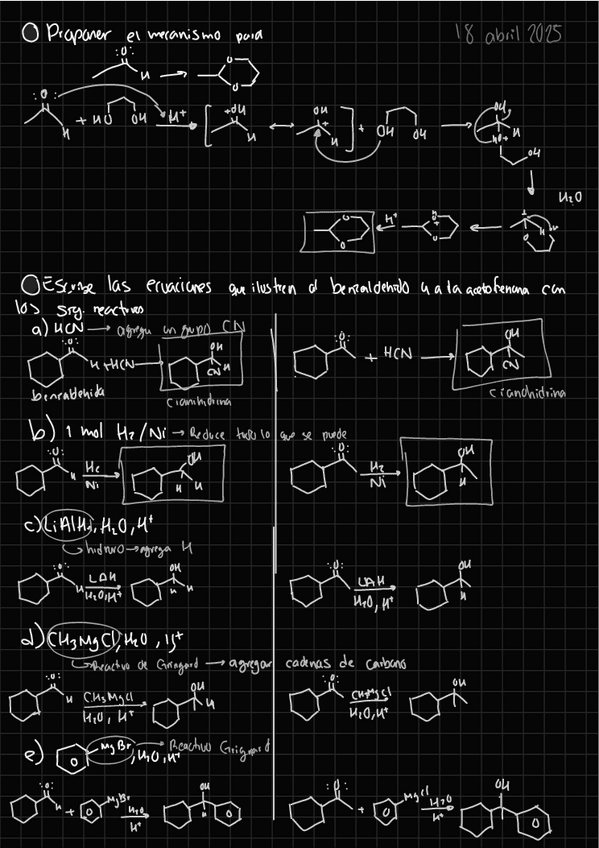 Proponer el mecanismo para
18 abril 2025
:O:
H
O
O
:O:
H
+ HO OH
H+
+OH
H
OH
+
H
+ OH OH
OH
H
HO+
OH
H2O
O
O
H+
O
O
H
O
Escribe las ecuaciones que ilustren al benzaldehido y a la acetofenona con
los sig. reactivos
a) HCN → agrega un grupo CN
:O:
H + HCN
OH
H
CN
benzaldehida
Cianihidrina
:O:
+ HCN
OH
CN
Cianohidrina
b) 1 mol H2/Ni → Reduce todo lo que se puede
:O:
H
H2
Ni
OH
H
H
:O:
H2
Ni
OH
H
c) LiAlH4, H2O, H+
hidruro → agrega H
:O:
H
LAH
H2O, H+
OH
H
H
:O:
LAH
H2O, H+
OH
H
d) CH3MgCl, H2O, H+
Reactivo de Gringard → agregar cadenas de carbono
:O:
H
CH3MgCl
H2O, H+
OH
H
:O:
CH3MgCl
H2O, H+
OH
e) MgBr, H2O, H+
Reactivo Grignard
:O:
H
+ MgBr
H2O
H+
OH
H
:O:
+ MgCl
H2O
H+
OH